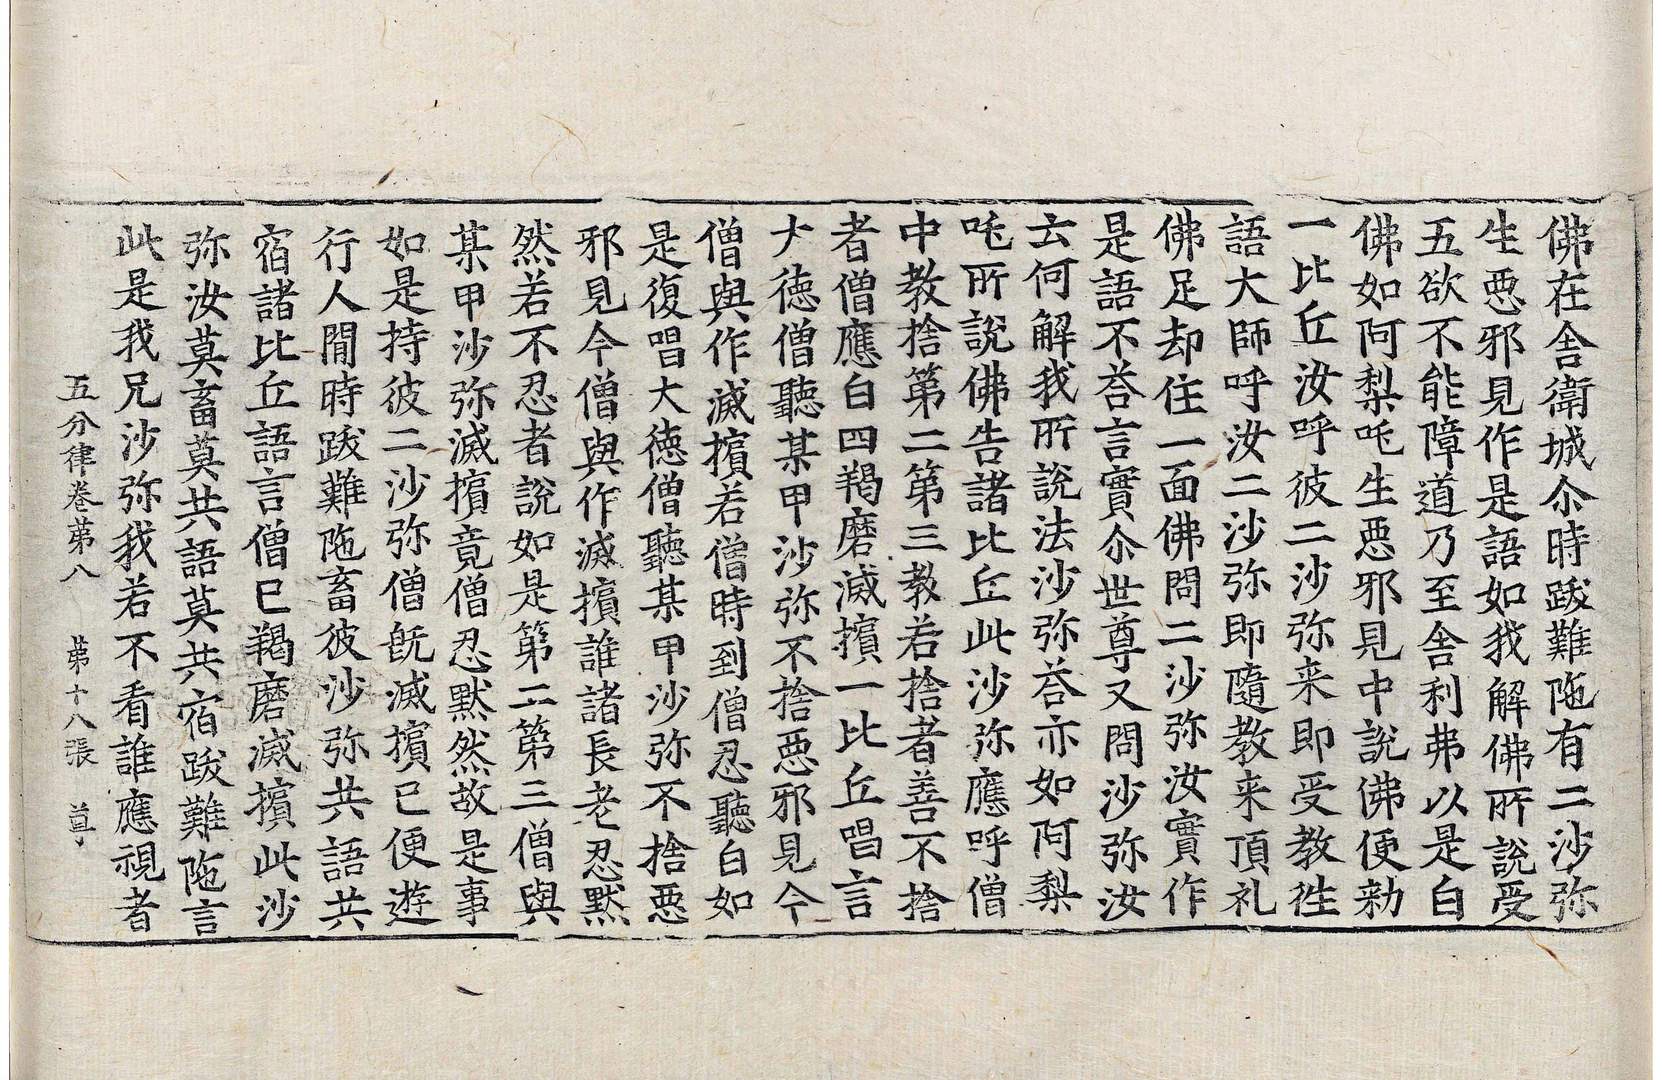 佛在舍衛城尒時跋難陁有二沙弥
生悪邪見作是語如我解佛所說受
五欲不能障道乃至舍利弗以是白
佛如阿梨吒生悪邪見中說佛便勑
一比丘汝呼彼二沙弥来即受教徃
語大師呼汝二沙弥即隨教来頂礼
佛足却住一面佛問二沙弥汝實作
是語不荅言實尒世尊又問沙弥汝
云何解我所說法沙弥荅亦如阿梨
吒所說佛告諸比丘此沙弥應呼僧
中教捨第二第三教若捨者善不捨
者僧應白四羯磨滅擯一比丘唱言
大德僧聽某甲沙弥不捨悪邪見今
僧與作滅擯若僧時到僧忍聽白如
是復唱大德僧聽某甲沙弥不捨悪
邪見今僧與作滅擯誰諸長老忍黙
然若不忍者說如是第二第三僧與
某甲沙弥滅擯竟僧忍黙然故是事
如是持彼二沙弥僧旣滅擯已便遊
行人閒時跋難陁畜彼沙弥共語共
宿諸比丘語言僧已羯磨滅擯此沙
弥汝莫畜莫共語莫共宿跋難陁言
此是我兄沙弥我若不看誰應視者
五分律卷苐八 苐十八張 尊